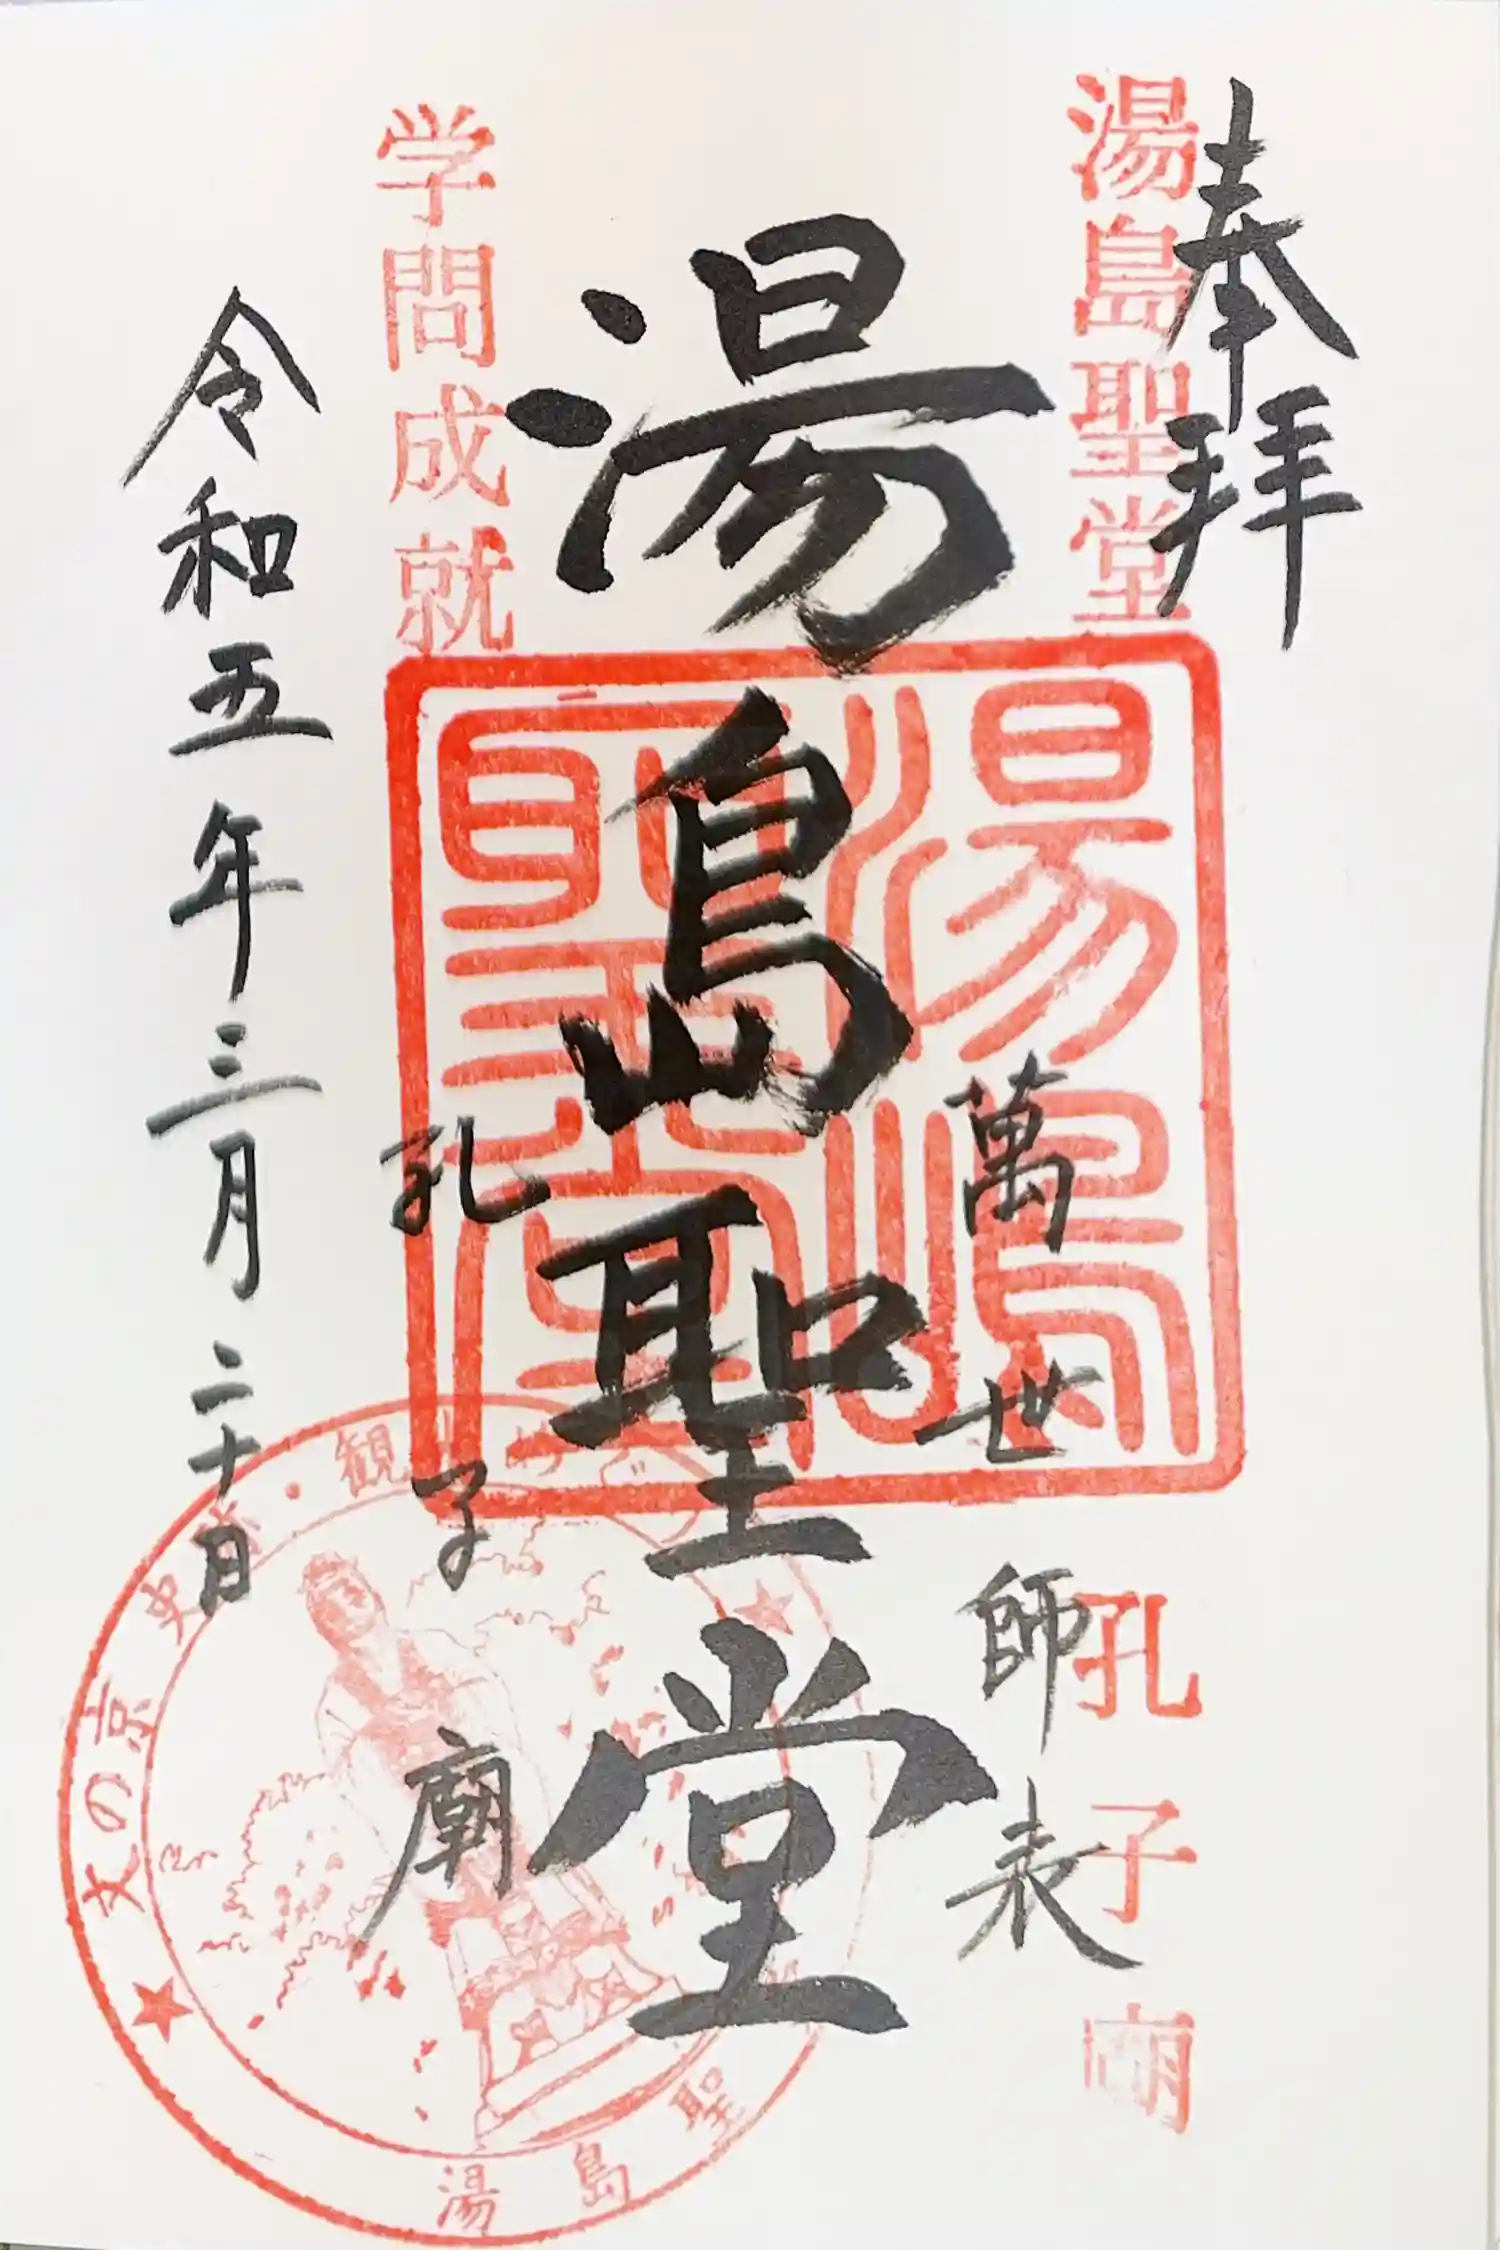 奉拝
湯島聖堂
萬世師表
孔子廟
湯島聖堂
湯嶋聖堂
学問成就
孔子廟
令和五年三月二十日
文の京 史跡・観
湯島聖